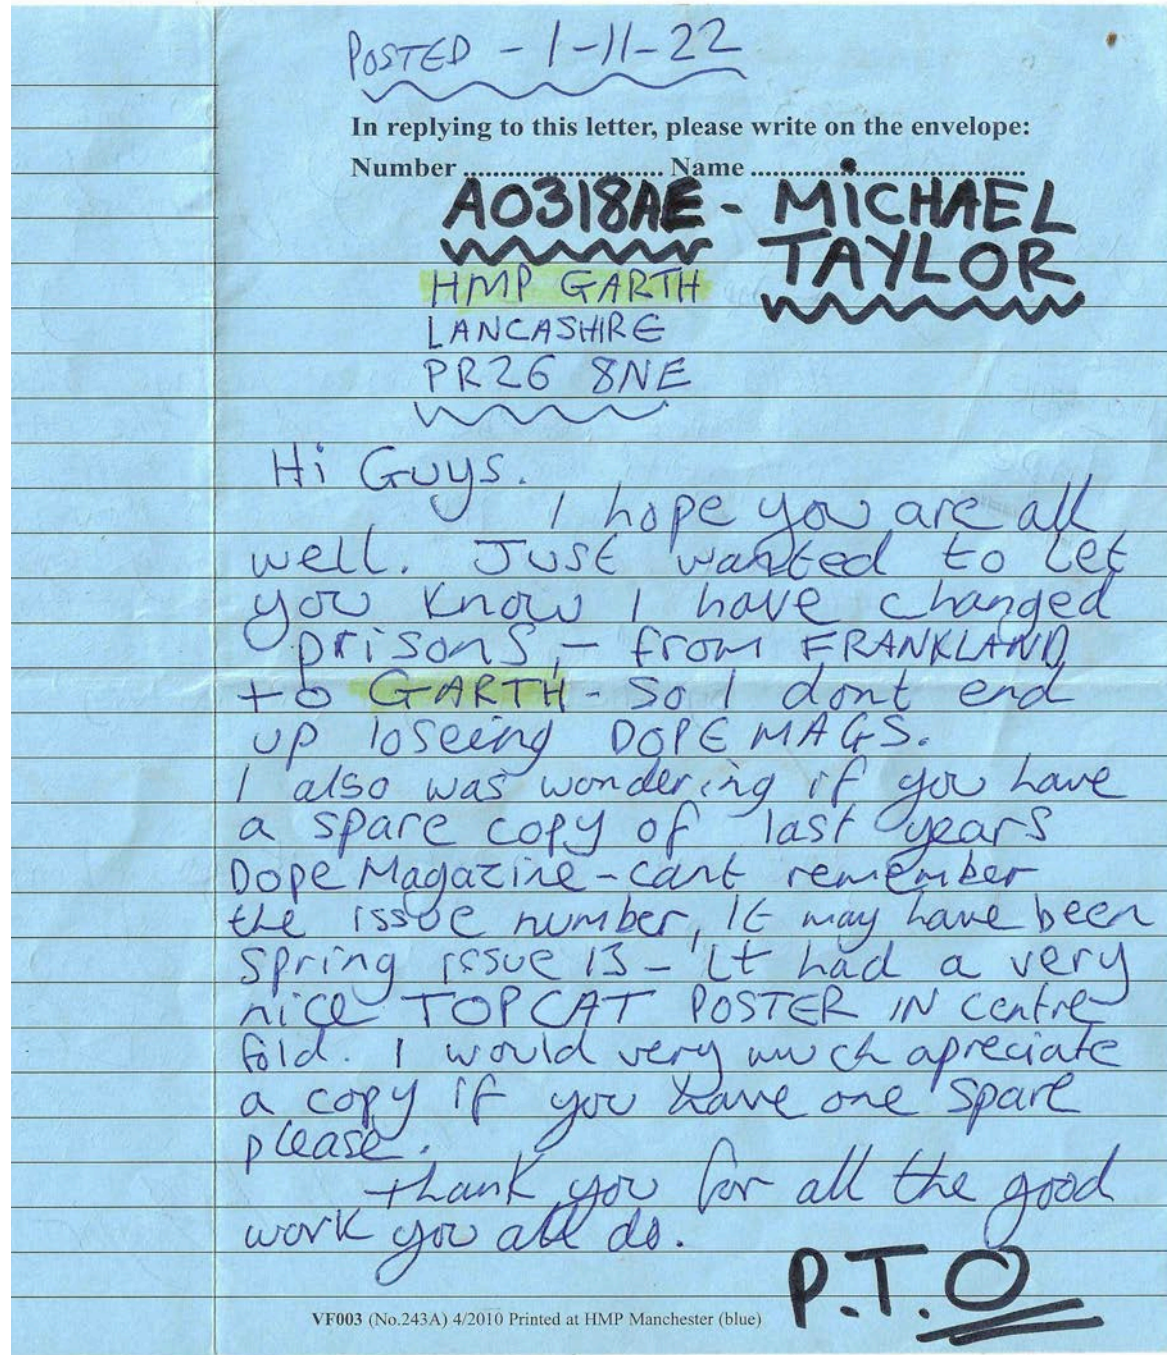 POSTED - 1-11-22
In replying to this letter, please write on the envelope:
Number ................................ Name ............................................
A0318AE - MICHAEL
TAYLOR
HMP GARTH
LANCASHIRE
PR26 8NE
Hi Guys.
I hope you are all
well. Just wanted to let
you know I have changed
prisons, - from FRANKLAND
to GARTH - so I dont end
up loseing DOPE MAGS.
I also was wondering if you have
a spare copy of last years
Dope Magazine - cant remember
the issue number, It may have been
Spring issue 13 - it had a very
nice TOPCAT POSTER IN centre-
fold. I would very much apreciate
a copy if you have one spare
please.
thank you for all the good
work you all do.
P.T.O
VF003 (No.243A) 4/2010 Printed at HMP Manchester (blue)